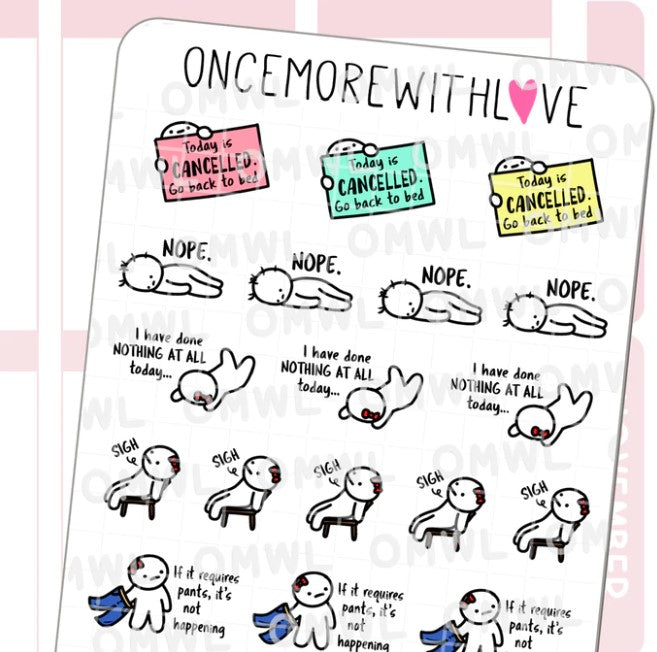 ONCEMOREWITHLOVE
Today is
CANCELLED.
Go back to bed
Today is
CANCELLED.
Go back to bed
Today is
CANCELLED.
Go back to bed
NOPE.
NOPE.
NOPE.
NOPE.
I have done
NOTHING AT ALL
today...
I have done
NOTHING AT ALL
today...
I have done
NOTHING AT ALL
today...
SIGH
SIGH
SIGH
SIGH
SIGH
If it requires
pants, it's
not
happening
If it requires
pants, it's
not
happening
If it requires
pants, it's
not
OMWL
OMWL
OMWL
OMWL
OMWL
OMWL
OMWL
OMWL
OMWL
OMWL